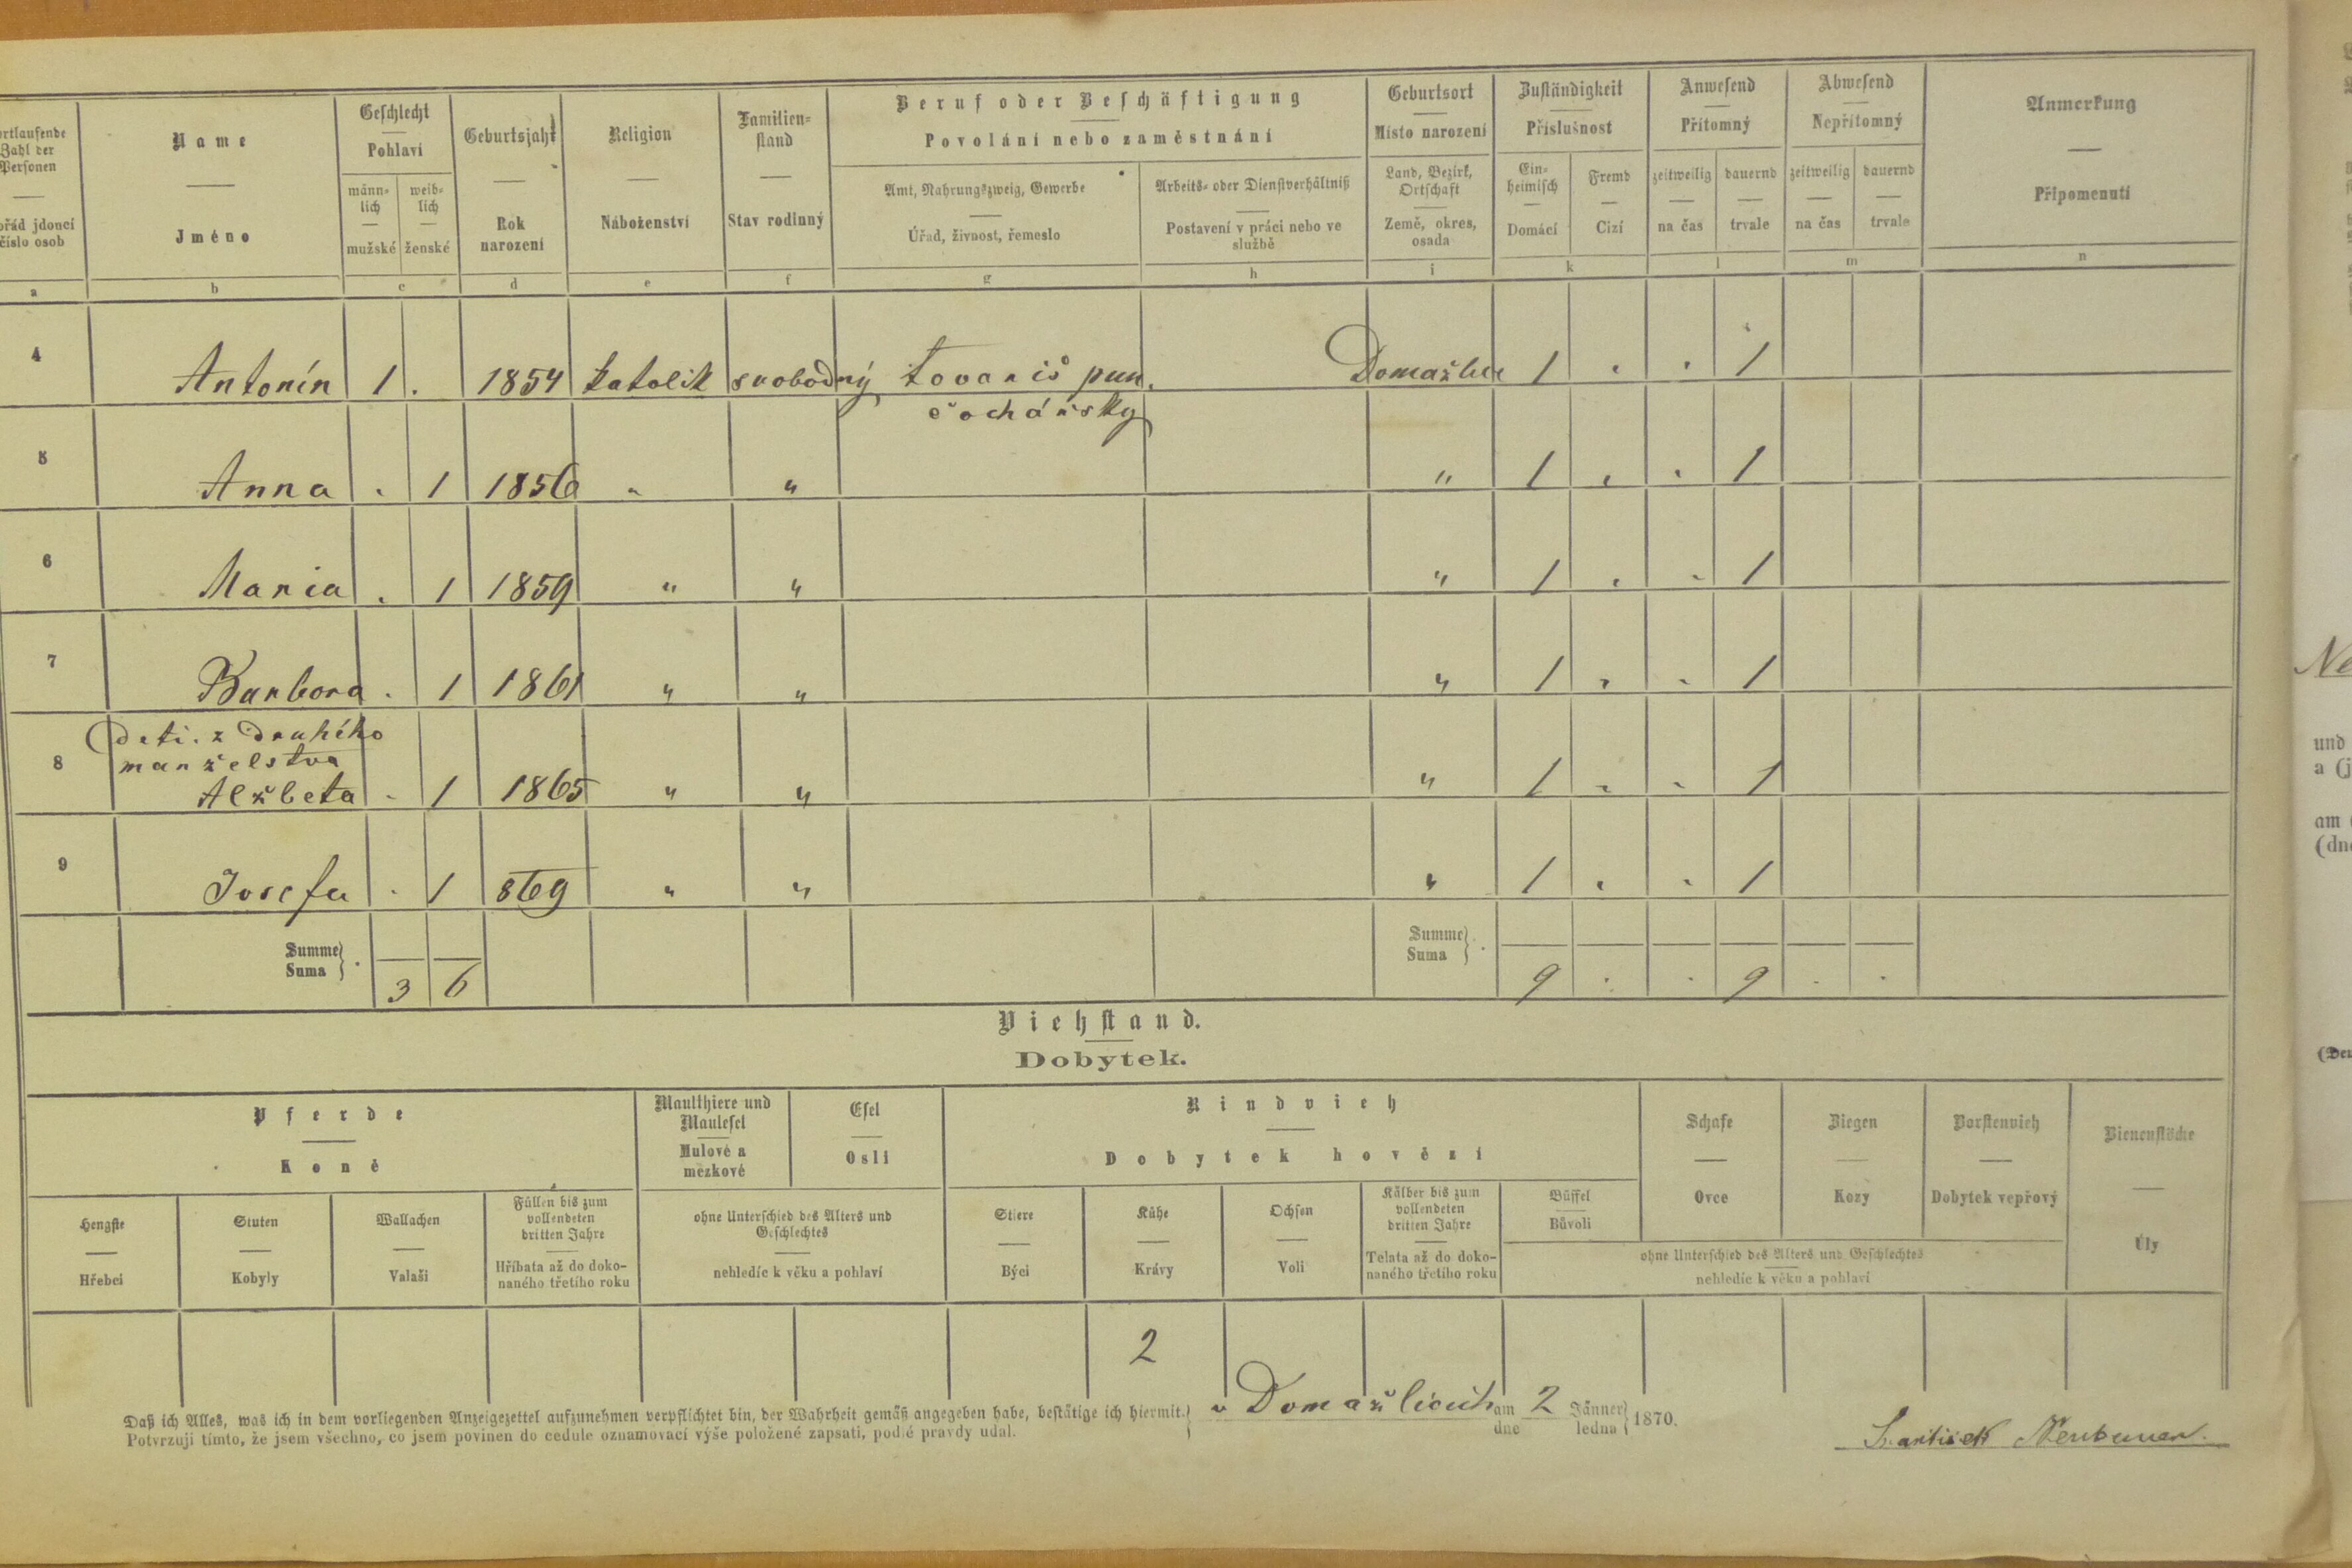 Name
Jméno
Geschlecht
Pohlaví
männ-
lich
mužské
weib-
lich
ženské
Geburtsjahr
Rok
narození
Religion
Náboženství
Familien-
stand
Stav rodinný
Beruf oder Beschäftigung
Povolání nebo zaměstnání
Amt, Nahrungszweig, Gewerbe
Úřad, živnost, řemeslo
Arbeits- oder Dienstverhältniß
Postavení v práci nebo ve
službě
Geburtsort
Místo narození
Land, Bezirk,
Ortschaft
Země, okres,
osada
Zuständigkeit
Příslušnost
Ein-
heimisch
Domácí
Fremd
Cizí
Anwesend
Přítomný
zeitweilig
na čas
dauernd
trvale
Abwesend
Nepřítomný
zeitweilig
na čas
dauernd
trvale
Anmerkung
Připomenutí
rtlaufende
Zahl der
Personen
ořád jdoucí
číslo osob
a b c d e f g h i k l m n
4 Antonín 1 . 1854 katolik svobodný tovariš pun. Domažlice 1 . . 1
čochářský
5 Anna . 1 1856 " " " 1 . . 1
6 Maria . 1 1859 " " " 1 . . 1
7 Barbora . 1 1861 " " " 1 . . 1
Deti. z Druhího
manželstva
8 Alžbeta . 1 1865 " " " 1 . . 1
9 Josefa . 1 869 " " " 1 . . 1
Summe
Suma
3 6
Summe
Suma
9 . . 9 . .
Viehstand.
Dobytek.
Pferde
Koně
Maulthiere und
Maulesel
Mulové a
mezkové
Esel
Osli
Rindvieh
Dobytek hovězí
Schafe
Ovce
Ziegen
Kozy
Borstenvieh
Dobytek vepřový
Bienenstöcke
Úly
Hengste
Hřebci
Stuten
Kobyly
Wallachen
Valaši
Füllen bis zum
vollendeten
dritten Jahre
Hříbata až do doko-
naného třetího roku
ohne Unterschied des Alters und
Geschlechtes
nehledíc k věku a pohlaví
Stiere
Býci
Kühe
Krávy
Ochsen
Voli
Kälber bis zum
vollendeten
dritten Jahre
Telata až do doko-
naného třetího roku
Büffel
Bůvoli
ohne Unterschied des Alters und Geschlechtes
nehledíc k věku a pohlaví
2
Daß ich Alles, was ich in dem vorliegenden Anzeigezettel aufzunehmen verpflichtet bin, der Wahrheit gemäß angegeben habe, bestätige ich hiermit.
Potvrzuji tímto, že jsem všechno, co jsem povinen do cedule oznamovací výše položené zapsati, podlé pravdy udal.
v Domažlicích am 2 Jänner 1870.
dne ledna
Frantisek Neubauer.
Ne
und
a (j
am (
(dne
(Der